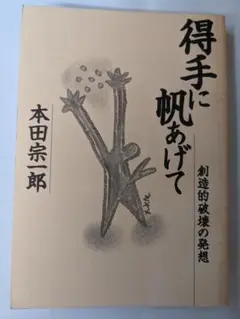 得手に
帆あげて
創造的破壊の発想
本田宗一郎